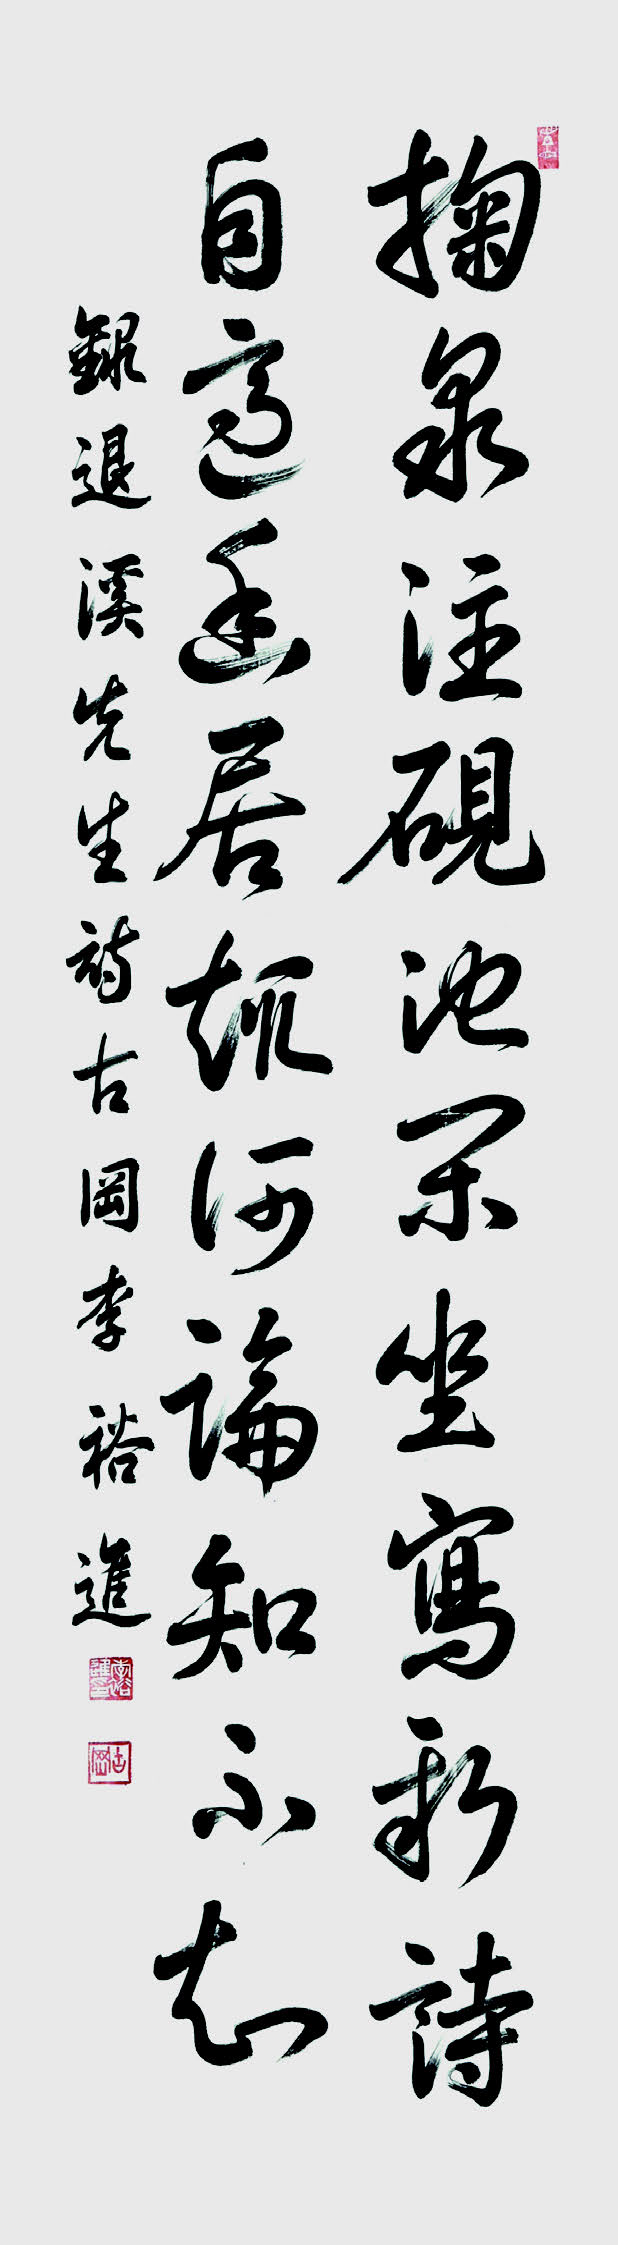 掬泉注硯池閑坐寫新詩
自適幽居趣何論知不知
錄退溪先生詩古岡李裕進